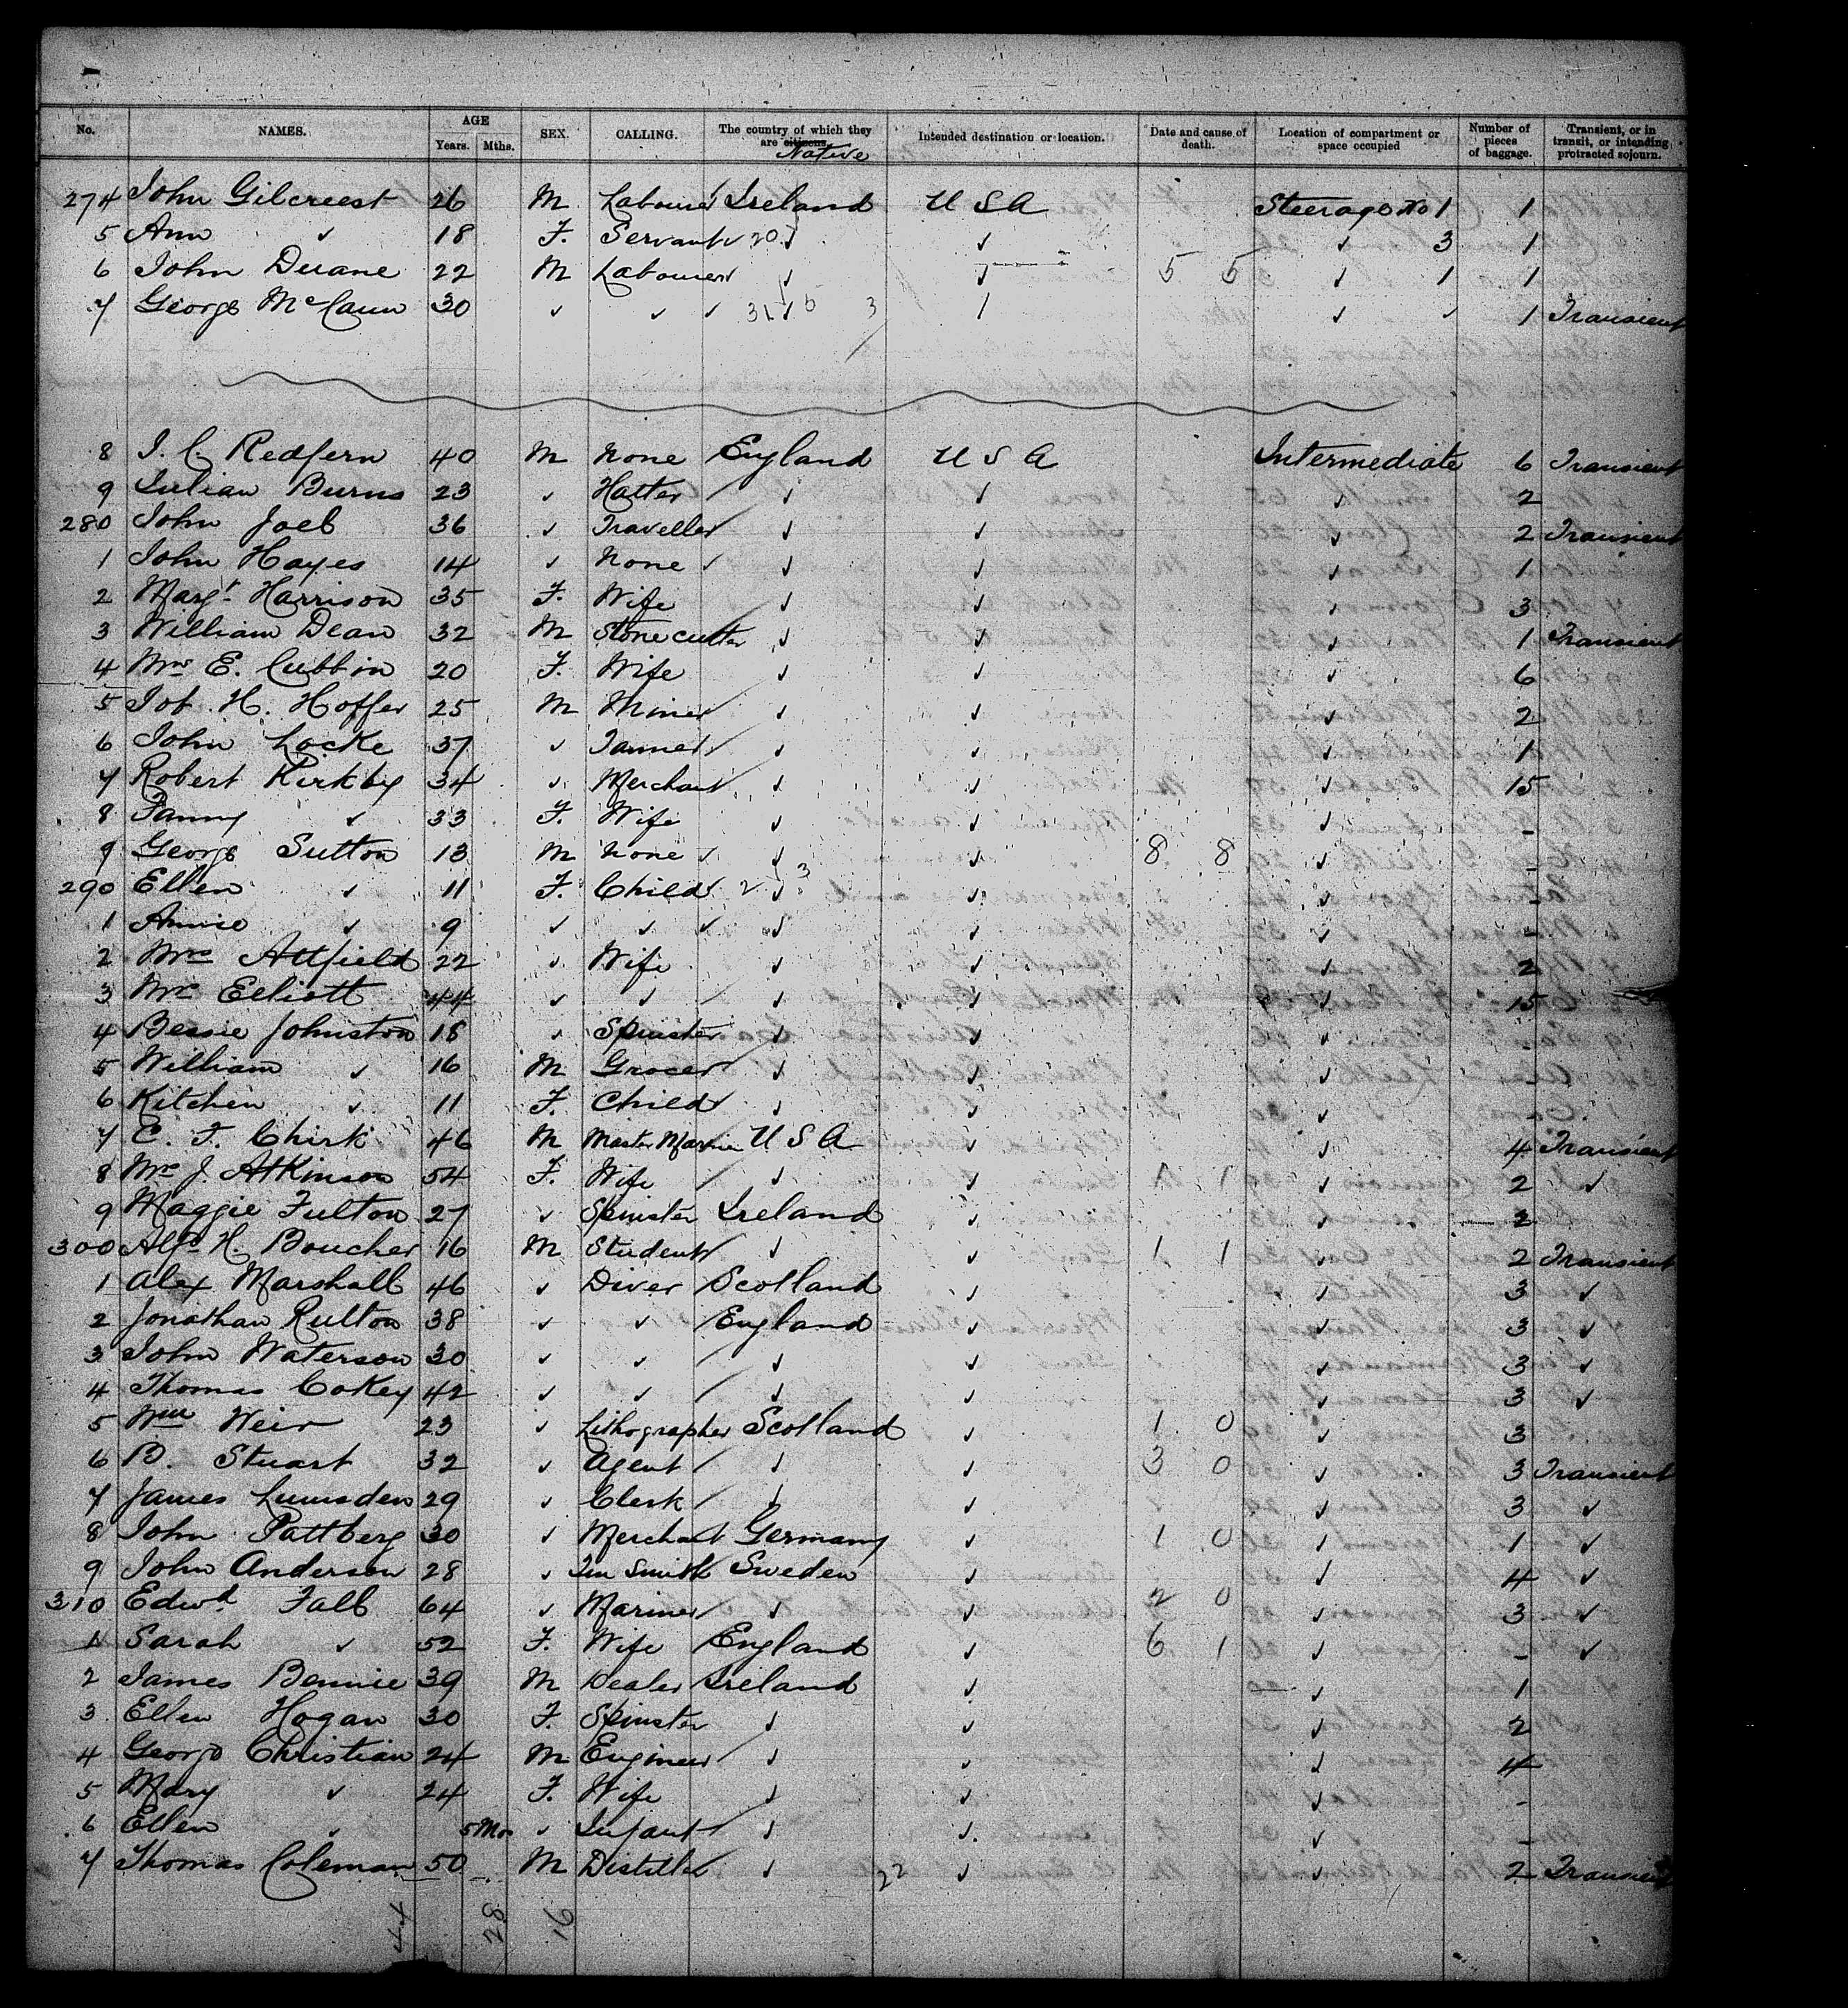 No. NAMES. AGE Years. Mths. SEX. CALLING. The country of which they are citizens. Native Intended destination or location. Date and cause of death. Location of compartment or space occupied Number of pieces of baggage. Transient, or in transit, or intending protracted sojourn.
274 John Gilcreest 26 M Labourer Ireland U S A Steerage No 1 1
5 Ann ✓ 18 F. Servant ✓ 20 ✓ ✓ ✓ 3 1
6 John Duane 22 M Labourer ✓ ✓ 5 5 ✓ 1 1
7 George McCann 30 ✓ ✓ ✓ ✓ ✓ 1 Transient
8 J. C. Redfern 40 M None England U S A Intermediate 6 Transient
9 Julian Burns 23 ✓ Hatter ✓ ✓ ✓ 2
280 John Joel 36 ✓ Traveller ✓ ✓ ✓ 2 Transient
1 John Hayes 14 ✓ None ✓ ✓ ✓ ✓ 1
2 Margt. Harrison 35 F. Wife ✓ ✓ ✓ 3
3 William Dean 32 M Stone cutter ✓ ✓ ✓ 1 Transient
4 Mrs E. Cubbin 20 F. Wife ✓ ✓ ✓ 6
5 Job. H. Hoffer 25 M Miner ✓ ✓ ✓ 2
6 John Locke 37 ✓ Tanner ✓ ✓ ✓ 1
7 Robert Kirkby 34 ✓ Merchant ✓ ✓ ✓ 15
8 Fanny ✓ 33 F. Wife ✓ ✓ ✓ -
9 George Sutton 13 M None ✓ ✓ ✓ 8 8 ✓ -
290 Ellen ✓ 11 F. Child 2 ✓ 3 ✓ ✓ -
1 Annie ✓ 9 ✓ ✓ ✓ ✓ ✓ ✓ -
2 Mrs Attfield 22 ✓ Wife ✓ ✓ ✓ 2
3 Mrs Elliott 44 ✓ ✓ ✓ ✓ ✓ 15
4 Bessie Johnston 18 ✓ Spinster ✓ ✓ ✓ -
5 William ✓ 16 M Grocer ✓ ✓ ✓ -
6 Kitchen ✓ 11 F. Child ✓ ✓ ✓ -
7 E. F. Chirk 46 M Master Marine U S A ✓ ✓ 4 Transient
8 Mrs J. Atkinson 54 F. Wife ✓ ✓ 1 1 ✓ 2 ✓
9 Maggie Fulton 27 ✓ Spinster Ireland ✓ ✓ 2
300 Alfd H. Boucher 16 M Student ✓ ✓ 1 1 ✓ 2 Transient
1 Alex Marshall 46 ✓ Diver Scotland ✓ ✓ 3 ✓
2 Jonathan Rulton 38 ✓ ✓ England ✓ ✓ 3 ✓
3 John Waterson 30 ✓ ✓ ✓ ✓ ✓ 3 ✓
4 Thomas Cokey 42 ✓ ✓ ✓ ✓ ✓ 3 ✓
5 Wm Weir 23 ✓ Lithographer Scotland ✓ 1 0 ✓ 3
6 D. Stuart 32 ✓ Agent ✓ ✓ 3 0 ✓ 3 Transient
7 James Lumsden 29 ✓ Clerk ✓ ✓ ✓ 3 ✓
8 John Pattberg 30 ✓ Merchant Germany ✓ 1 0 ✓ 1 ✓
9 John Anderson 28 ✓ Tin Smith Sweden ✓ ✓ 4 ✓
310 Edwd Fall 64 ✓ Mariner ✓ ✓ 2 0 ✓ 3 ✓
1 Sarah ✓ 52 F. Wife England ✓ 6 1 ✓ - ✓
2 James Bennie 39 M Dealer Ireland ✓ ✓ 1
3 Ellen Hogan 30 F. Spinster ✓ ✓ ✓ 2
4 George Christian 24 M Engineer ✓ ✓ ✓ 4
5 Mary ✓ 24 F. Wife ✓ ✓ ✓ -
6 Ellen ✓ 5 Mos ✓ Infant ✓ ✓ ✓ -
7 Thomas Coleman 50 M Distiller ✓ 22 ✓ ✓ 2 Transient
44 28 16